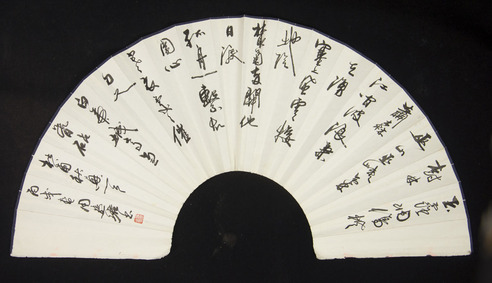 玉露凋傷楓
樹林
巫山巫峽氣
蕭森
江間波浪兼
天湧
塞上風雲接
地陰
叢菊兩開他
日淚
孤舟一繫故
園心
寒衣處處催
刀尺
白帝城高急
暮砧
杜甫秋興一首